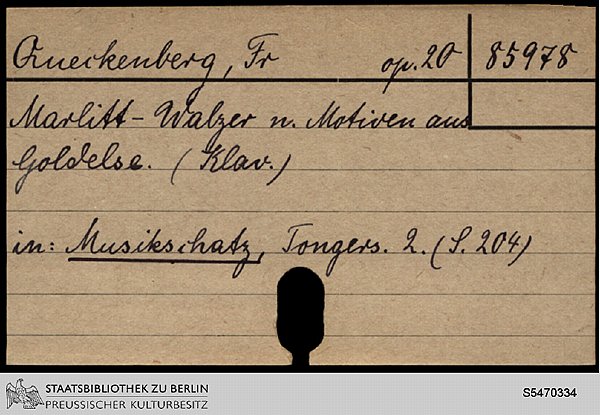 Queckenberg, Fr op. 20 85978
Marlitt-Walzer n. Motiven aus
Goldelse. (Klav.)
in: Musikschatz, Tongers. 2. (S. 204)
STAATSBIBLIOTHEK ZU BERLIN
PREUSSISCHER KULTURBESITZ
S5470334